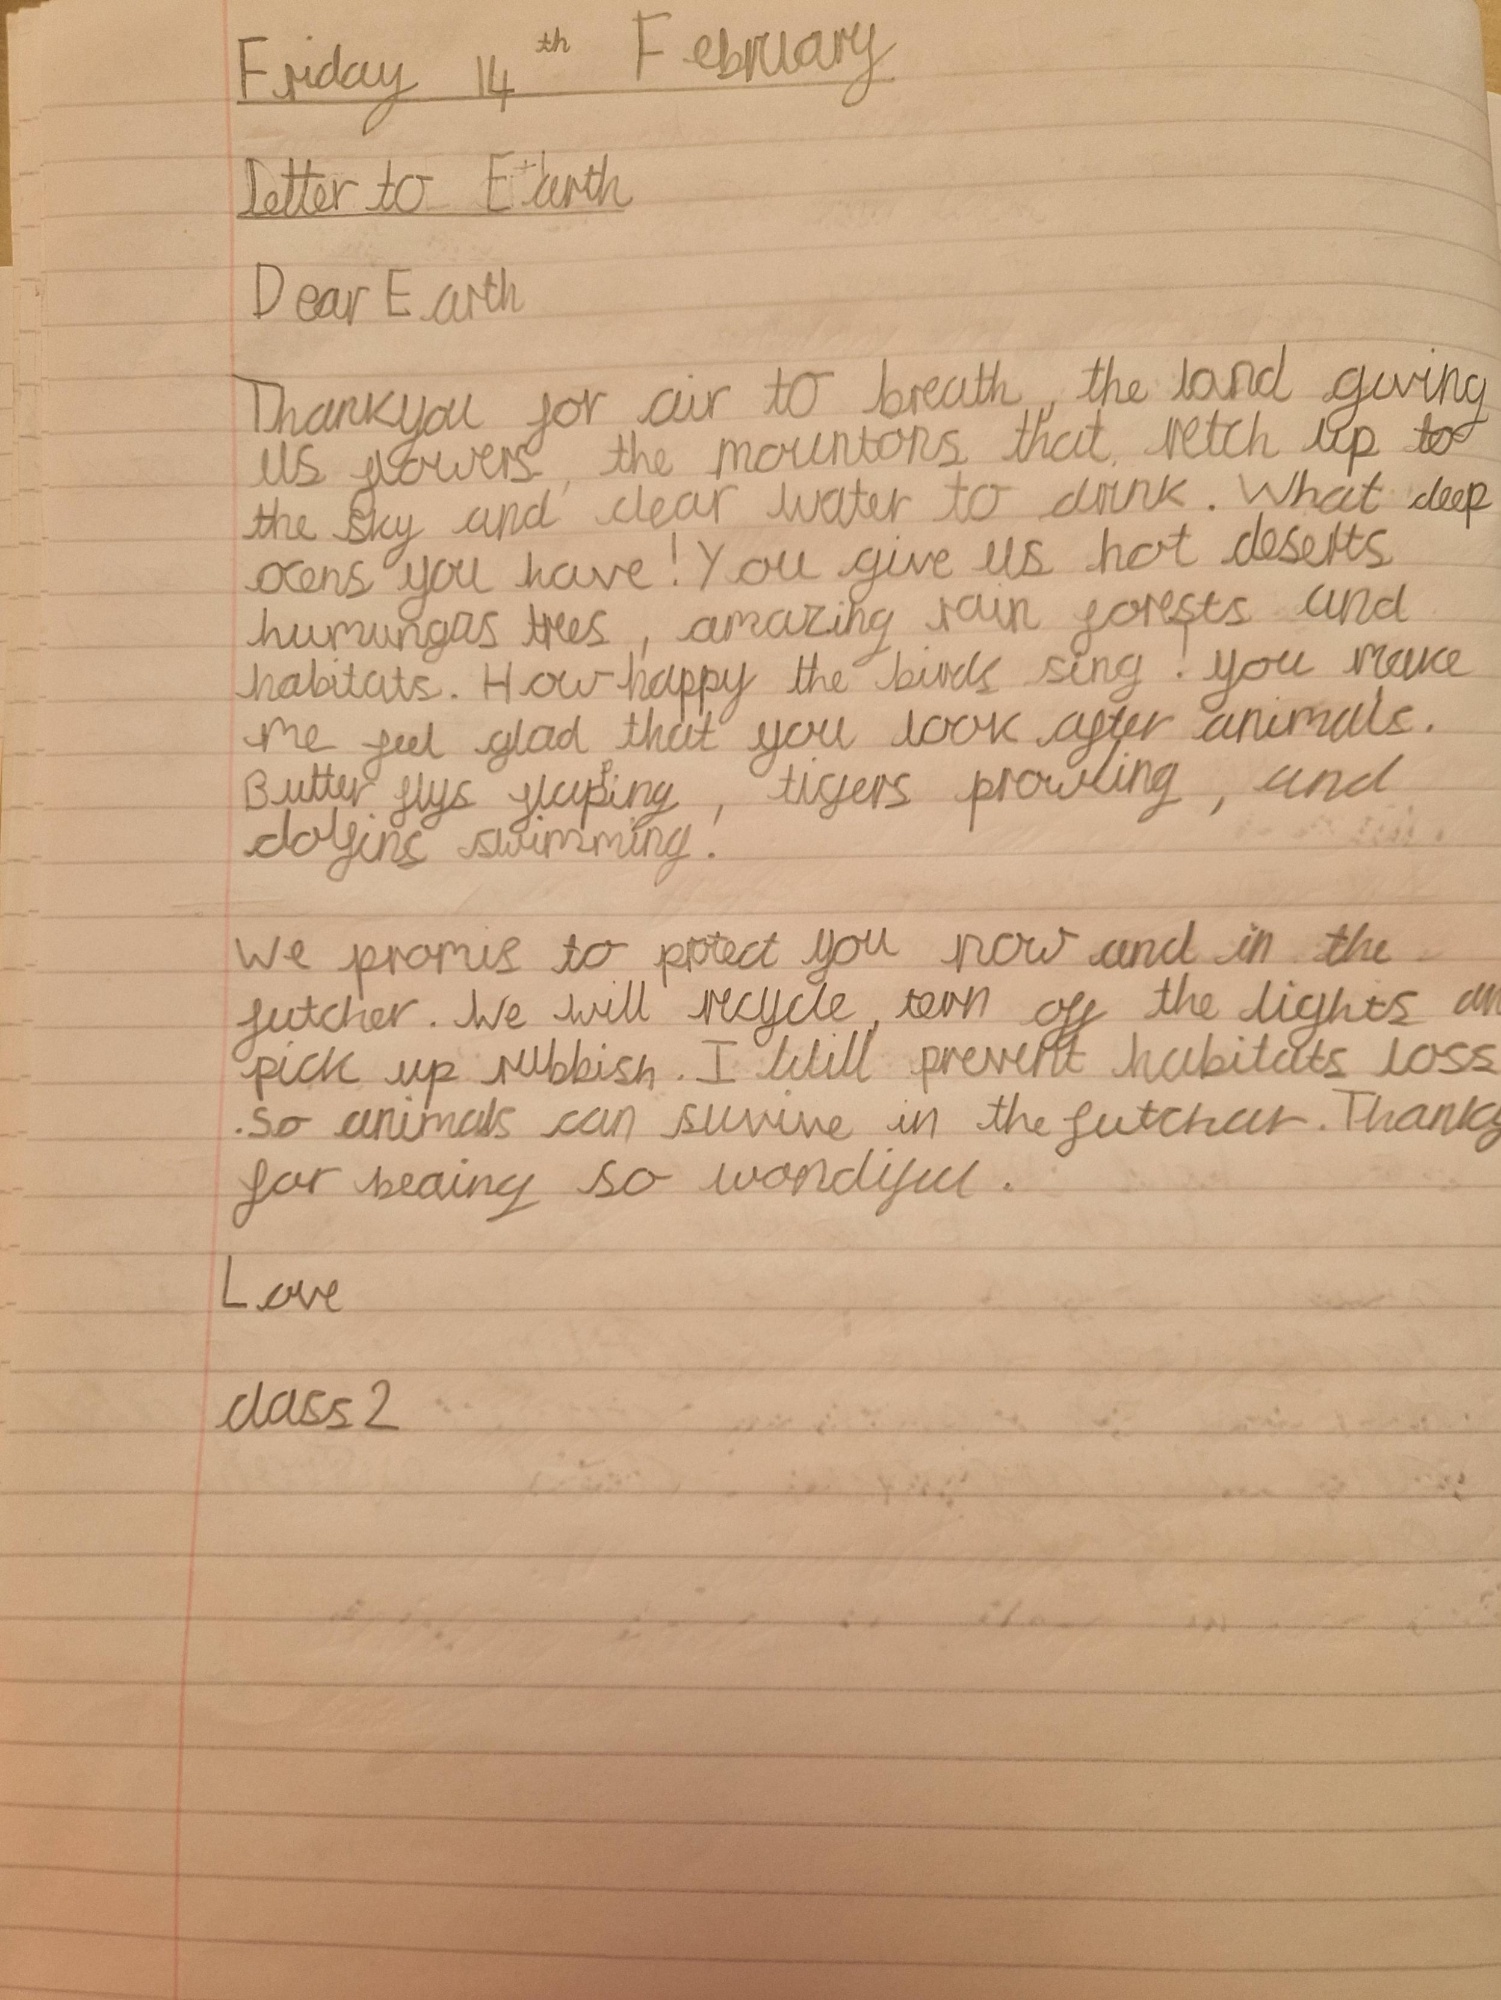 Friday 14th February
letter to Earth
Dear Earth
Thankyou for air to breath, the land giving
us flowers, the mountons that retch up to
the sky and clear water to drink. What deep
ocens you have! You give us hot deserts
humungas trees, amazing rain forests and
habitats. How happy the birds sing! you make
me feel glad that you look after animals.
Butter flys flapping, tigers prowling, and
dolfins swimming.
We promis to protect you now and in the
futcher. We will recycle, tern off the lights an
pick up rubbish. I will prevent habitats loss
so animals can suvive in the futchar. Thanks
for beaing so wondiful.
Love
class 2